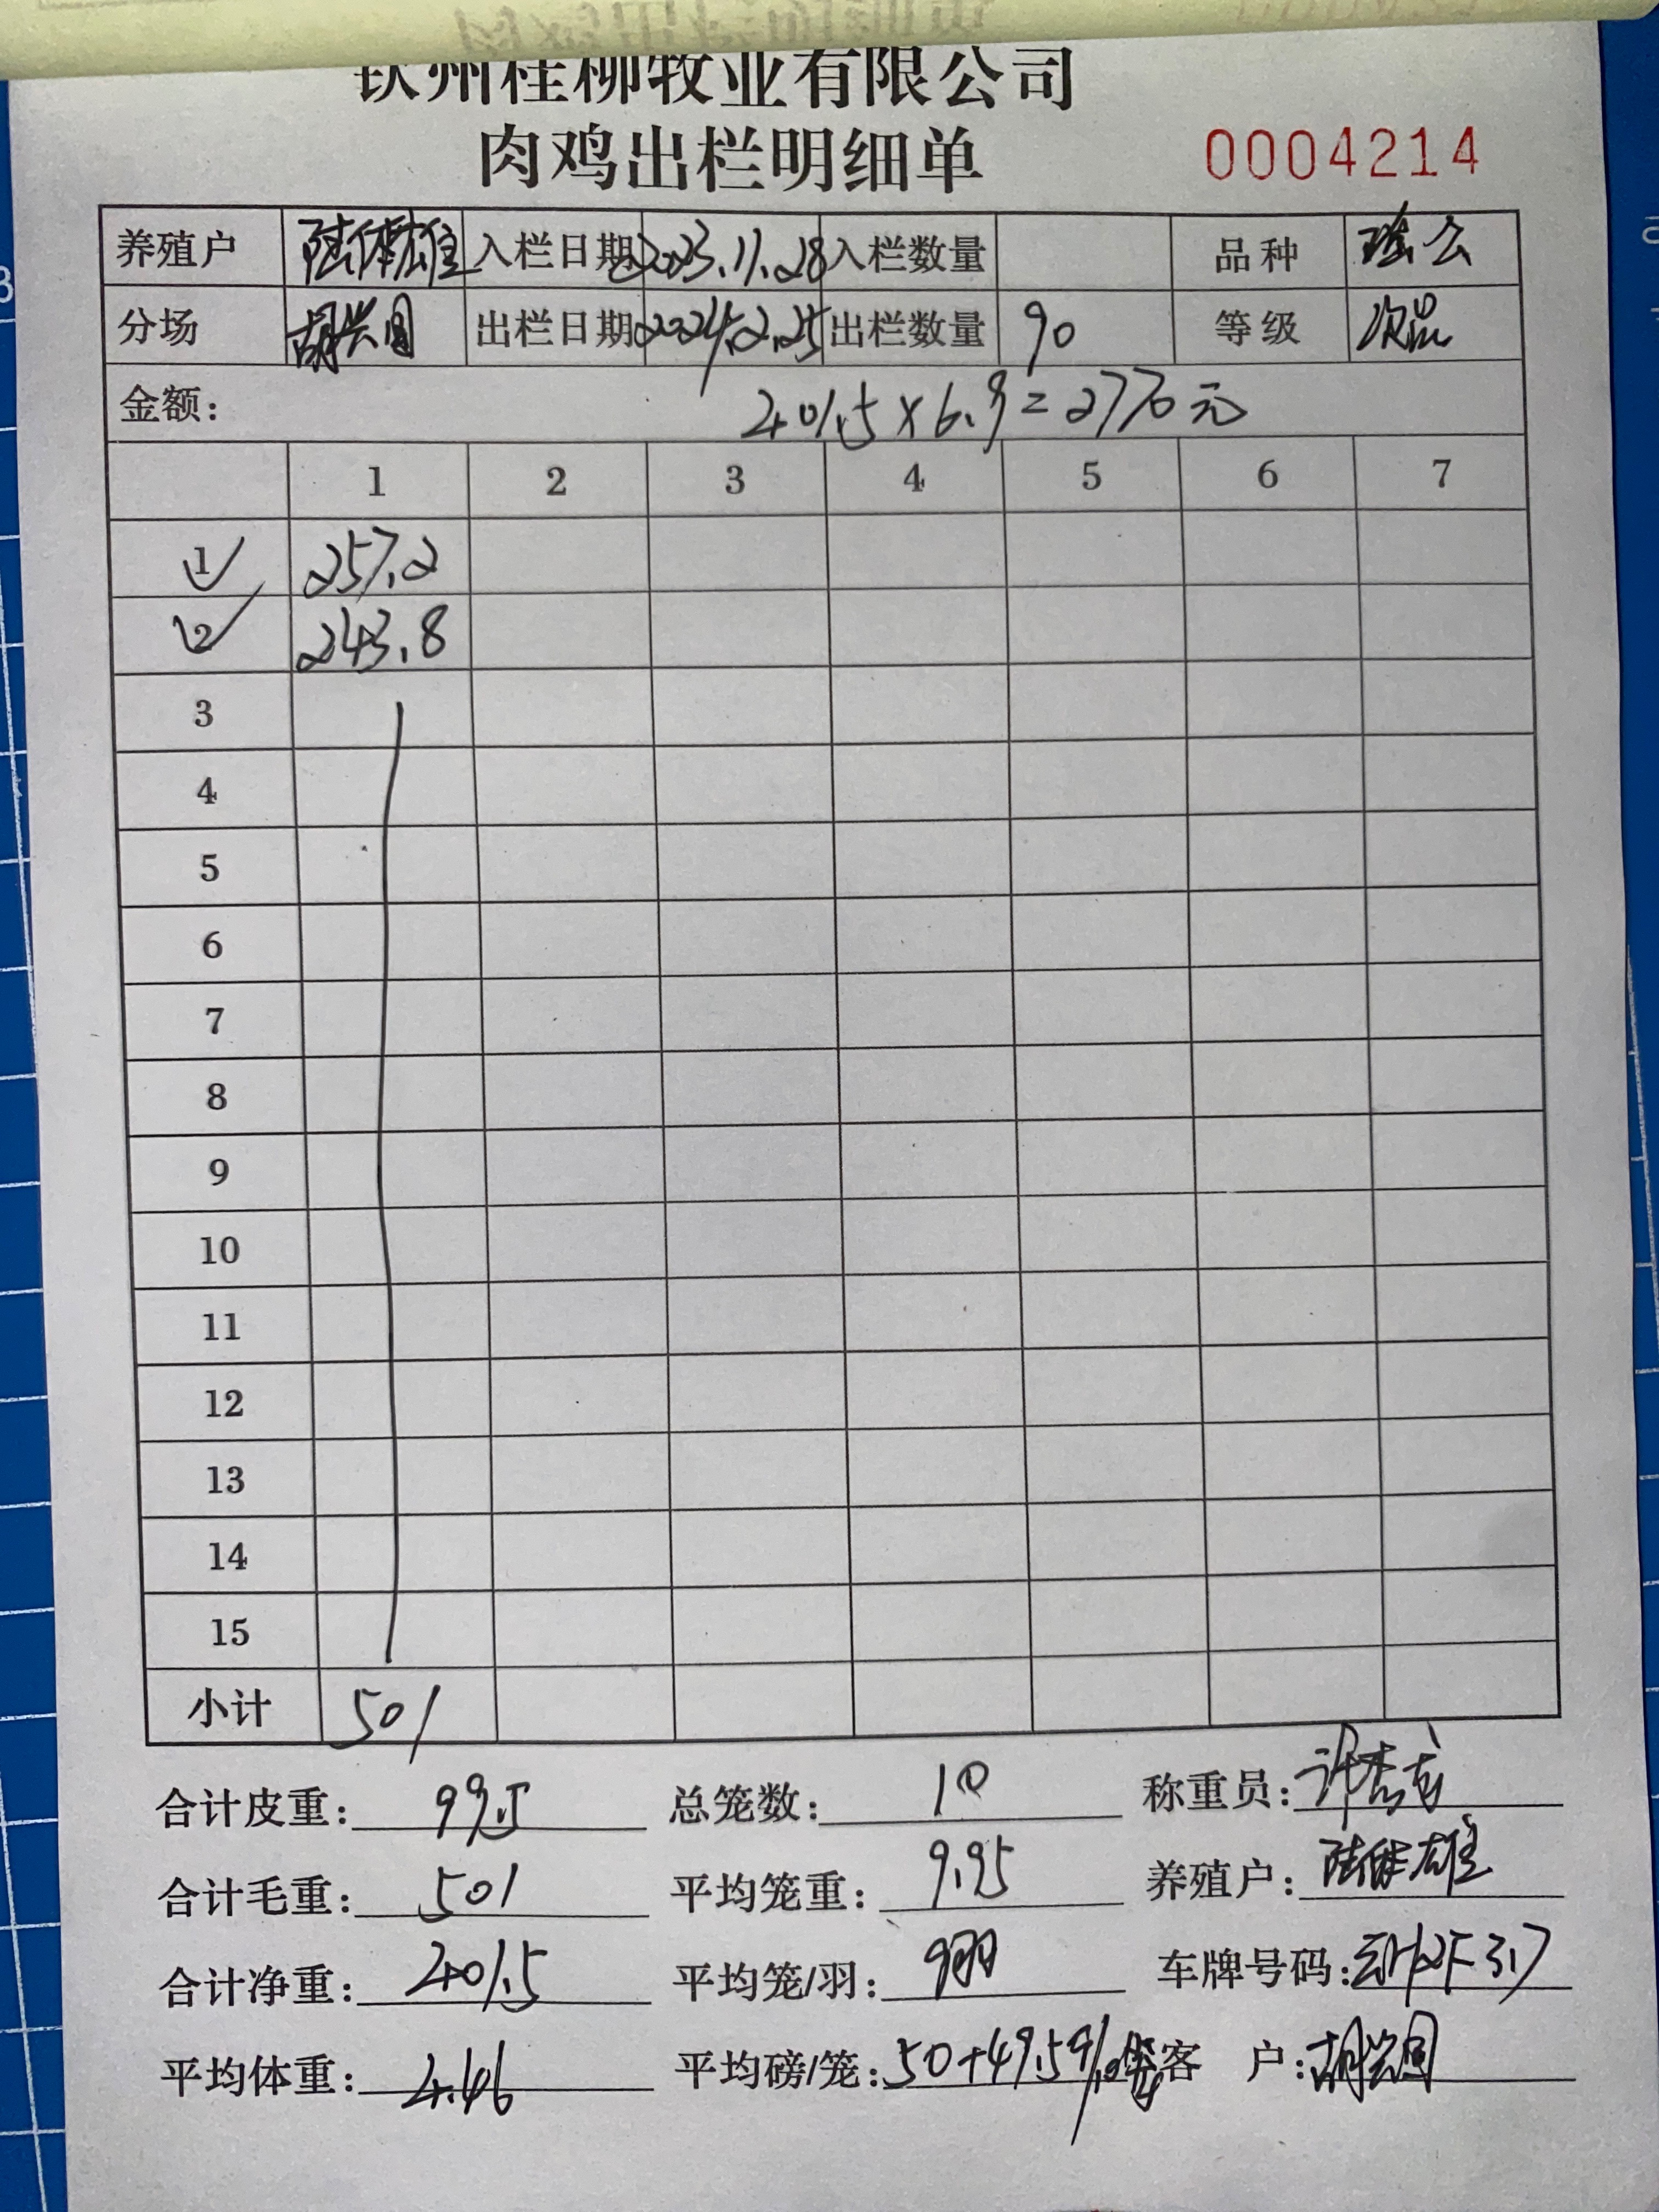 钦州桂柳牧业有限公司
肉鸡出栏明细单 0004214
养殖户 入栏日期 2023.11.28 入栏数量 品种
分场 胡兴国 出栏日期 2024.2.25 出栏数量 90 等级 次品
金额: 401.5×6.9=2770元
1 2 3 4 5 6 7
1 257.2
2 243.8
3
4
5
6
7
8
9
10
11
12
13
14
15
小计 501
合计皮重: 99.5 总笼数: 10 称重员:
合计毛重: 501 平均笼重: 9.95 养殖户:
合计净重: 401.5 平均笼/羽: 9羽 车牌号码:
平均体重: 4.46 平均磅/笼: 50+49.5 客户: 胡兴国